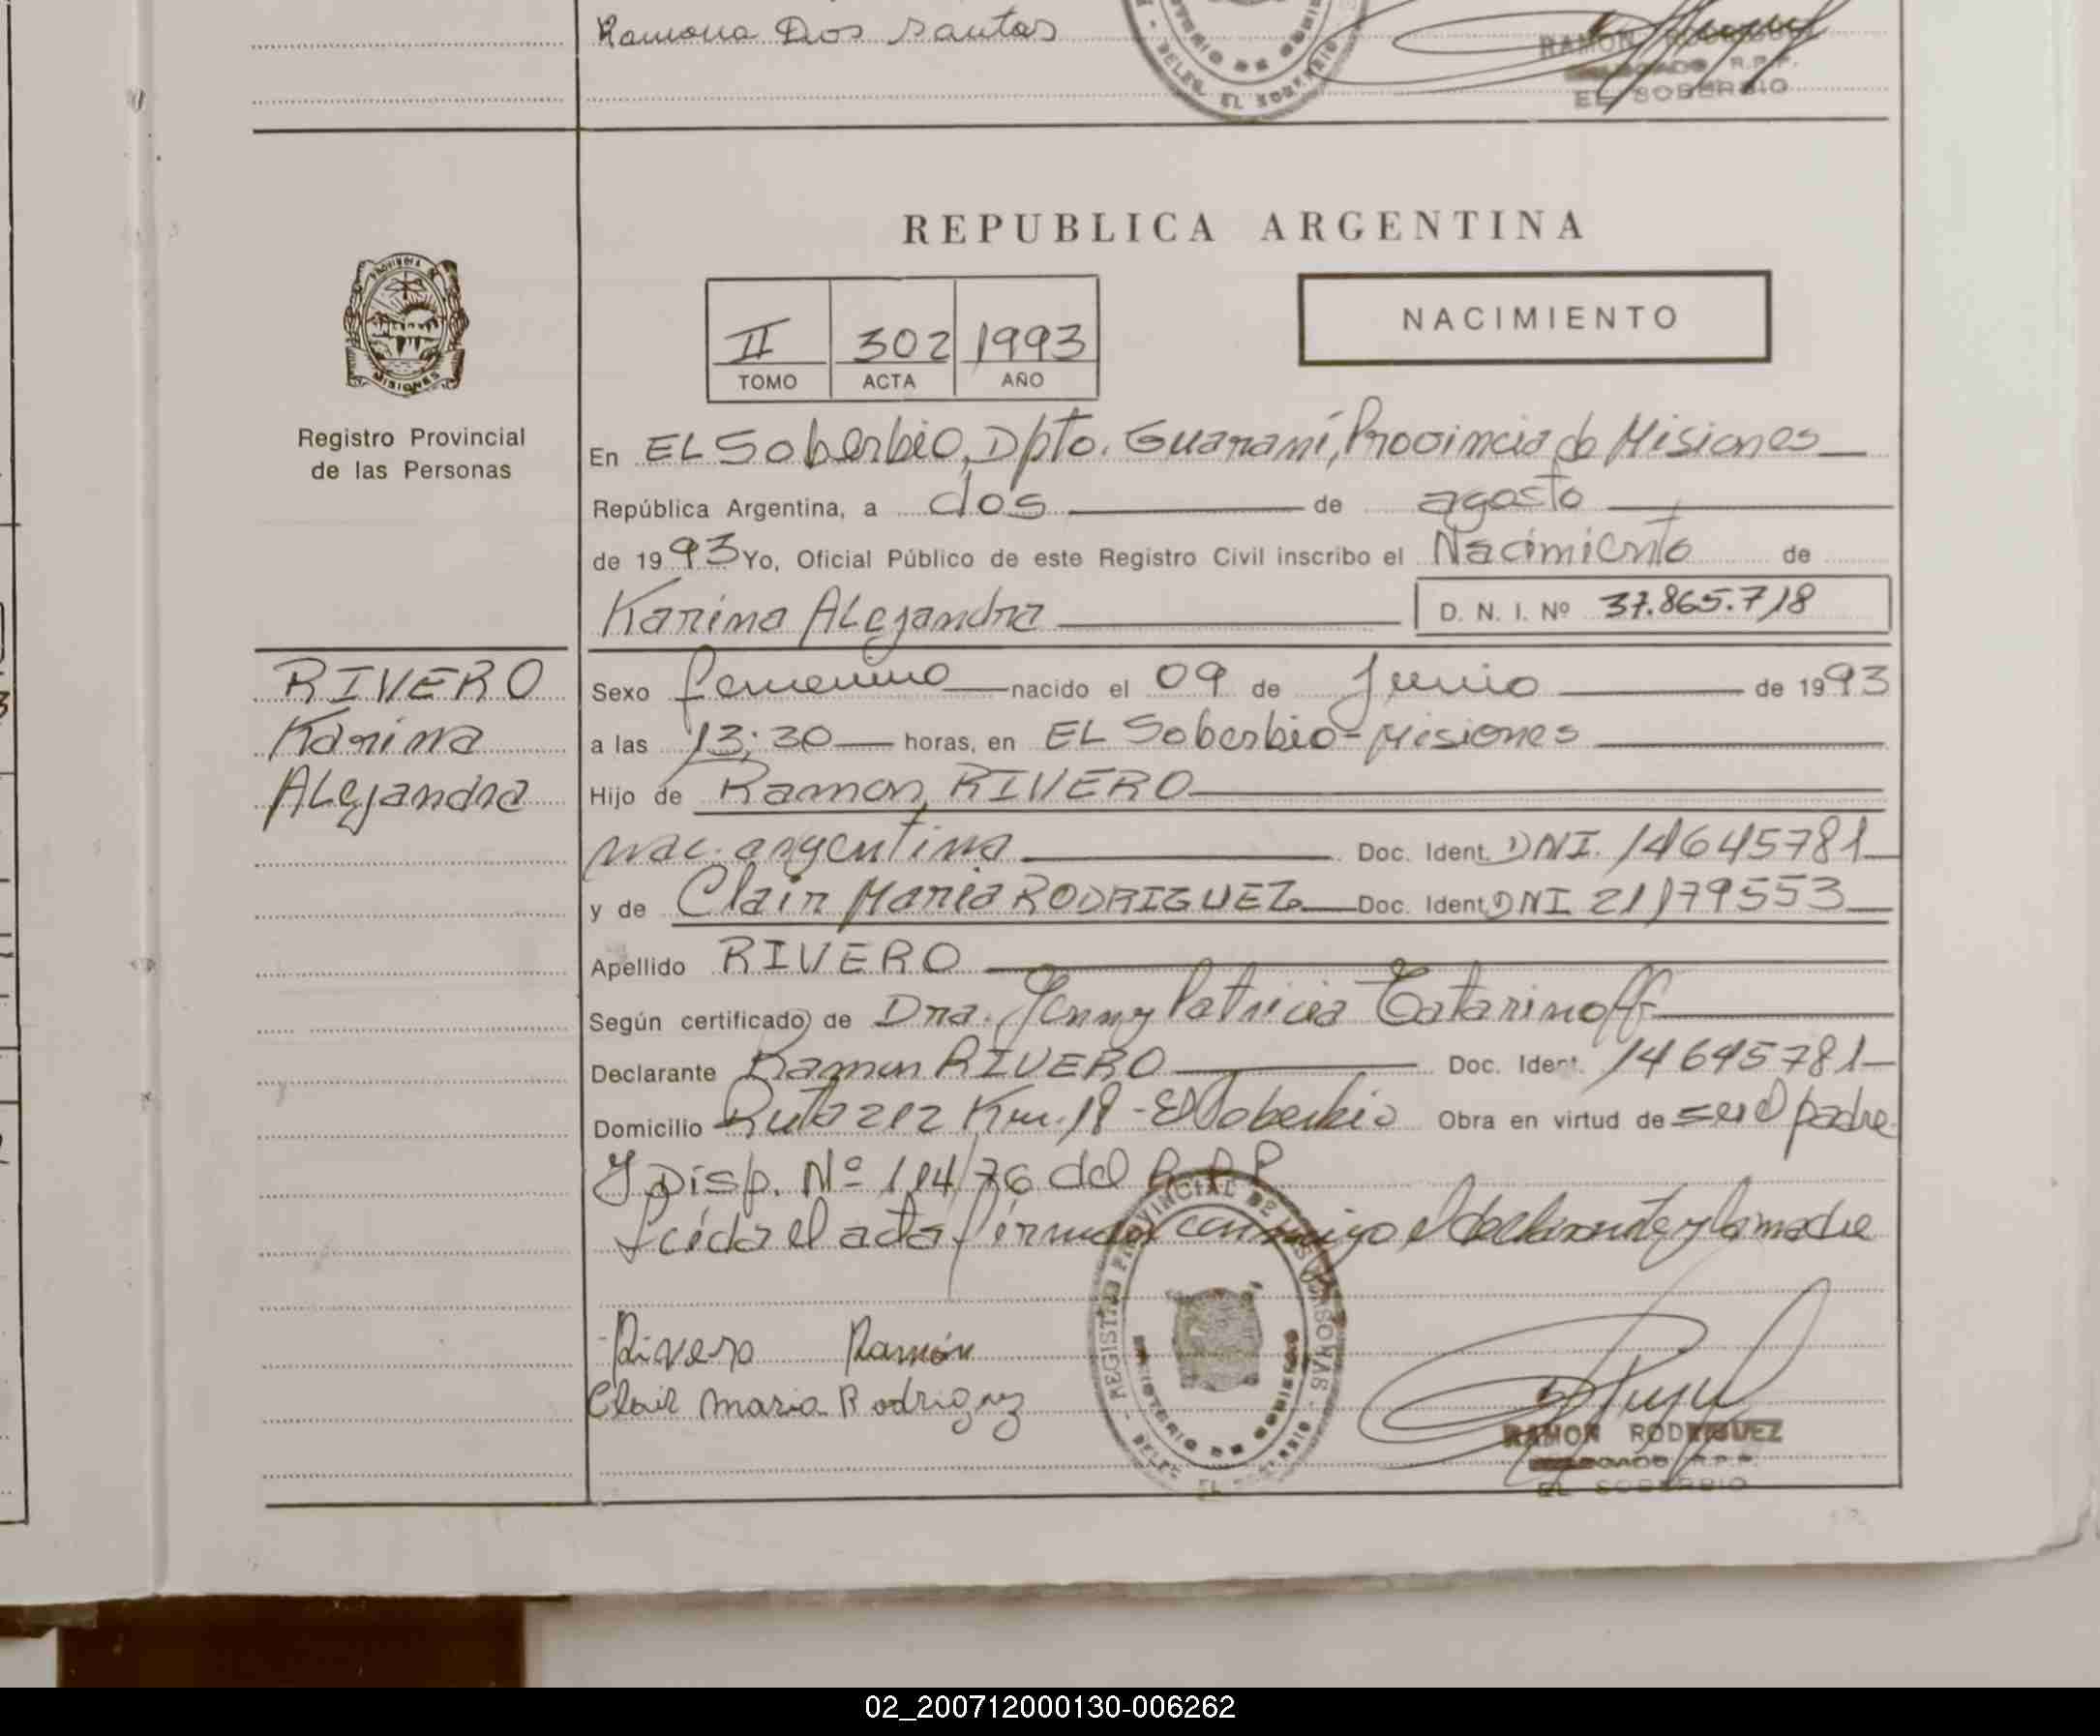 Ramona Dos Santos
RAMON RODRIGUEZ
R.P.P.
EL SOBERBIO
REPUBLICA ARGENTINA
II 302 1993
TOMO ACTA AÑO
NACIMIENTO
PROVINCIA DE
MISIONES
Registro Provincial
de las Personas
En EL Soberbio, Dpto. Guaraní, Provincia de Misiones
República Argentina, a dos de agosto
de 1993 Yo, Oficial Público de este Registro Civil inscribo el Nacimiento de
Karina Alejandra D. N. I. Nº 37.865.718
RIVERO
Karina
Alejandra
Sexo femenino nacido el 09 de Junio de 1993
a las 13:30 horas, en EL Soberbio-Misiones
Hijo de Ramon RIVERO
nac. argentina Doc. Ident. DNI. 14645781
y de Clair Maria RODRIGUEZ Doc. Ident. DNI 21179553
Apellido RIVERO
Según certificado de Dra. Jenny Patricia Tatarinoff
Declarante Ramon RIVERO Doc. Ident. 14645781
Domicilio Ruta 212 Km. 18 - El Soberbio Obra en virtud de ser el padre
y Disp. Nº 114/76 del R.P.P.
Leída el acta firman conmigo el declarante y la madre
Rivero Ramón
Clair maria Rodriguez
REGISTRO PROVINCIAL DE LAS PERSONAS -
MINISTERIO DE GOBIERNO
DELEG. EL SOBERBIO
RAMON RODRIGUEZ
DELEGADO R.P.P.
EL SOBERBIO
02_200712000130-006262